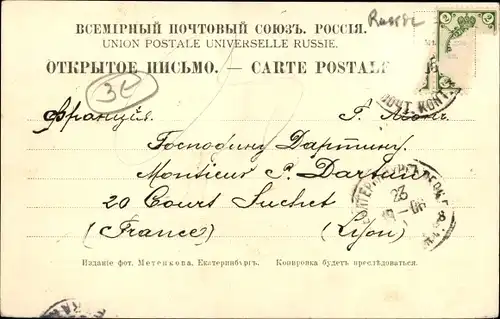 ВСЕМІРНЫЙ ПОЧТОВЫЙ СОЮЗЪ. РОССІЯ.
UNION POSTALE UNIVERSELLE RUSSIE.
Russie
ОТКРЫТОЕ ПИСЬМО. — CARTE POSTALE
3E
ПОЧТ. КОНТ.
Франція. Г. Ліонъ.
Господину Дартинъ.
Monsieur P.
20 Court Suchet
(France) (Lyon)
23
06
Изданіе фот. Метенкова. Екатеринбургъ. Копировка будетъ преслѣдоваться.